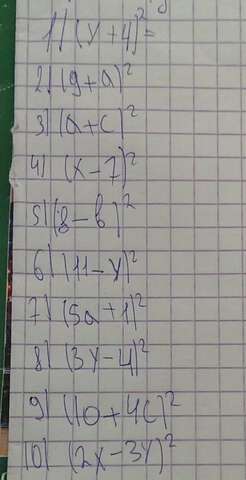 1) (y+4)²=
2) (9+a)²
3) (a+c)²
4) (x-7)²
5) (8-b)²
6) (11-y)²
7) (5a+1)²
8) (3y-4)²
9) (10+4c)²
10) (2x-3y)²